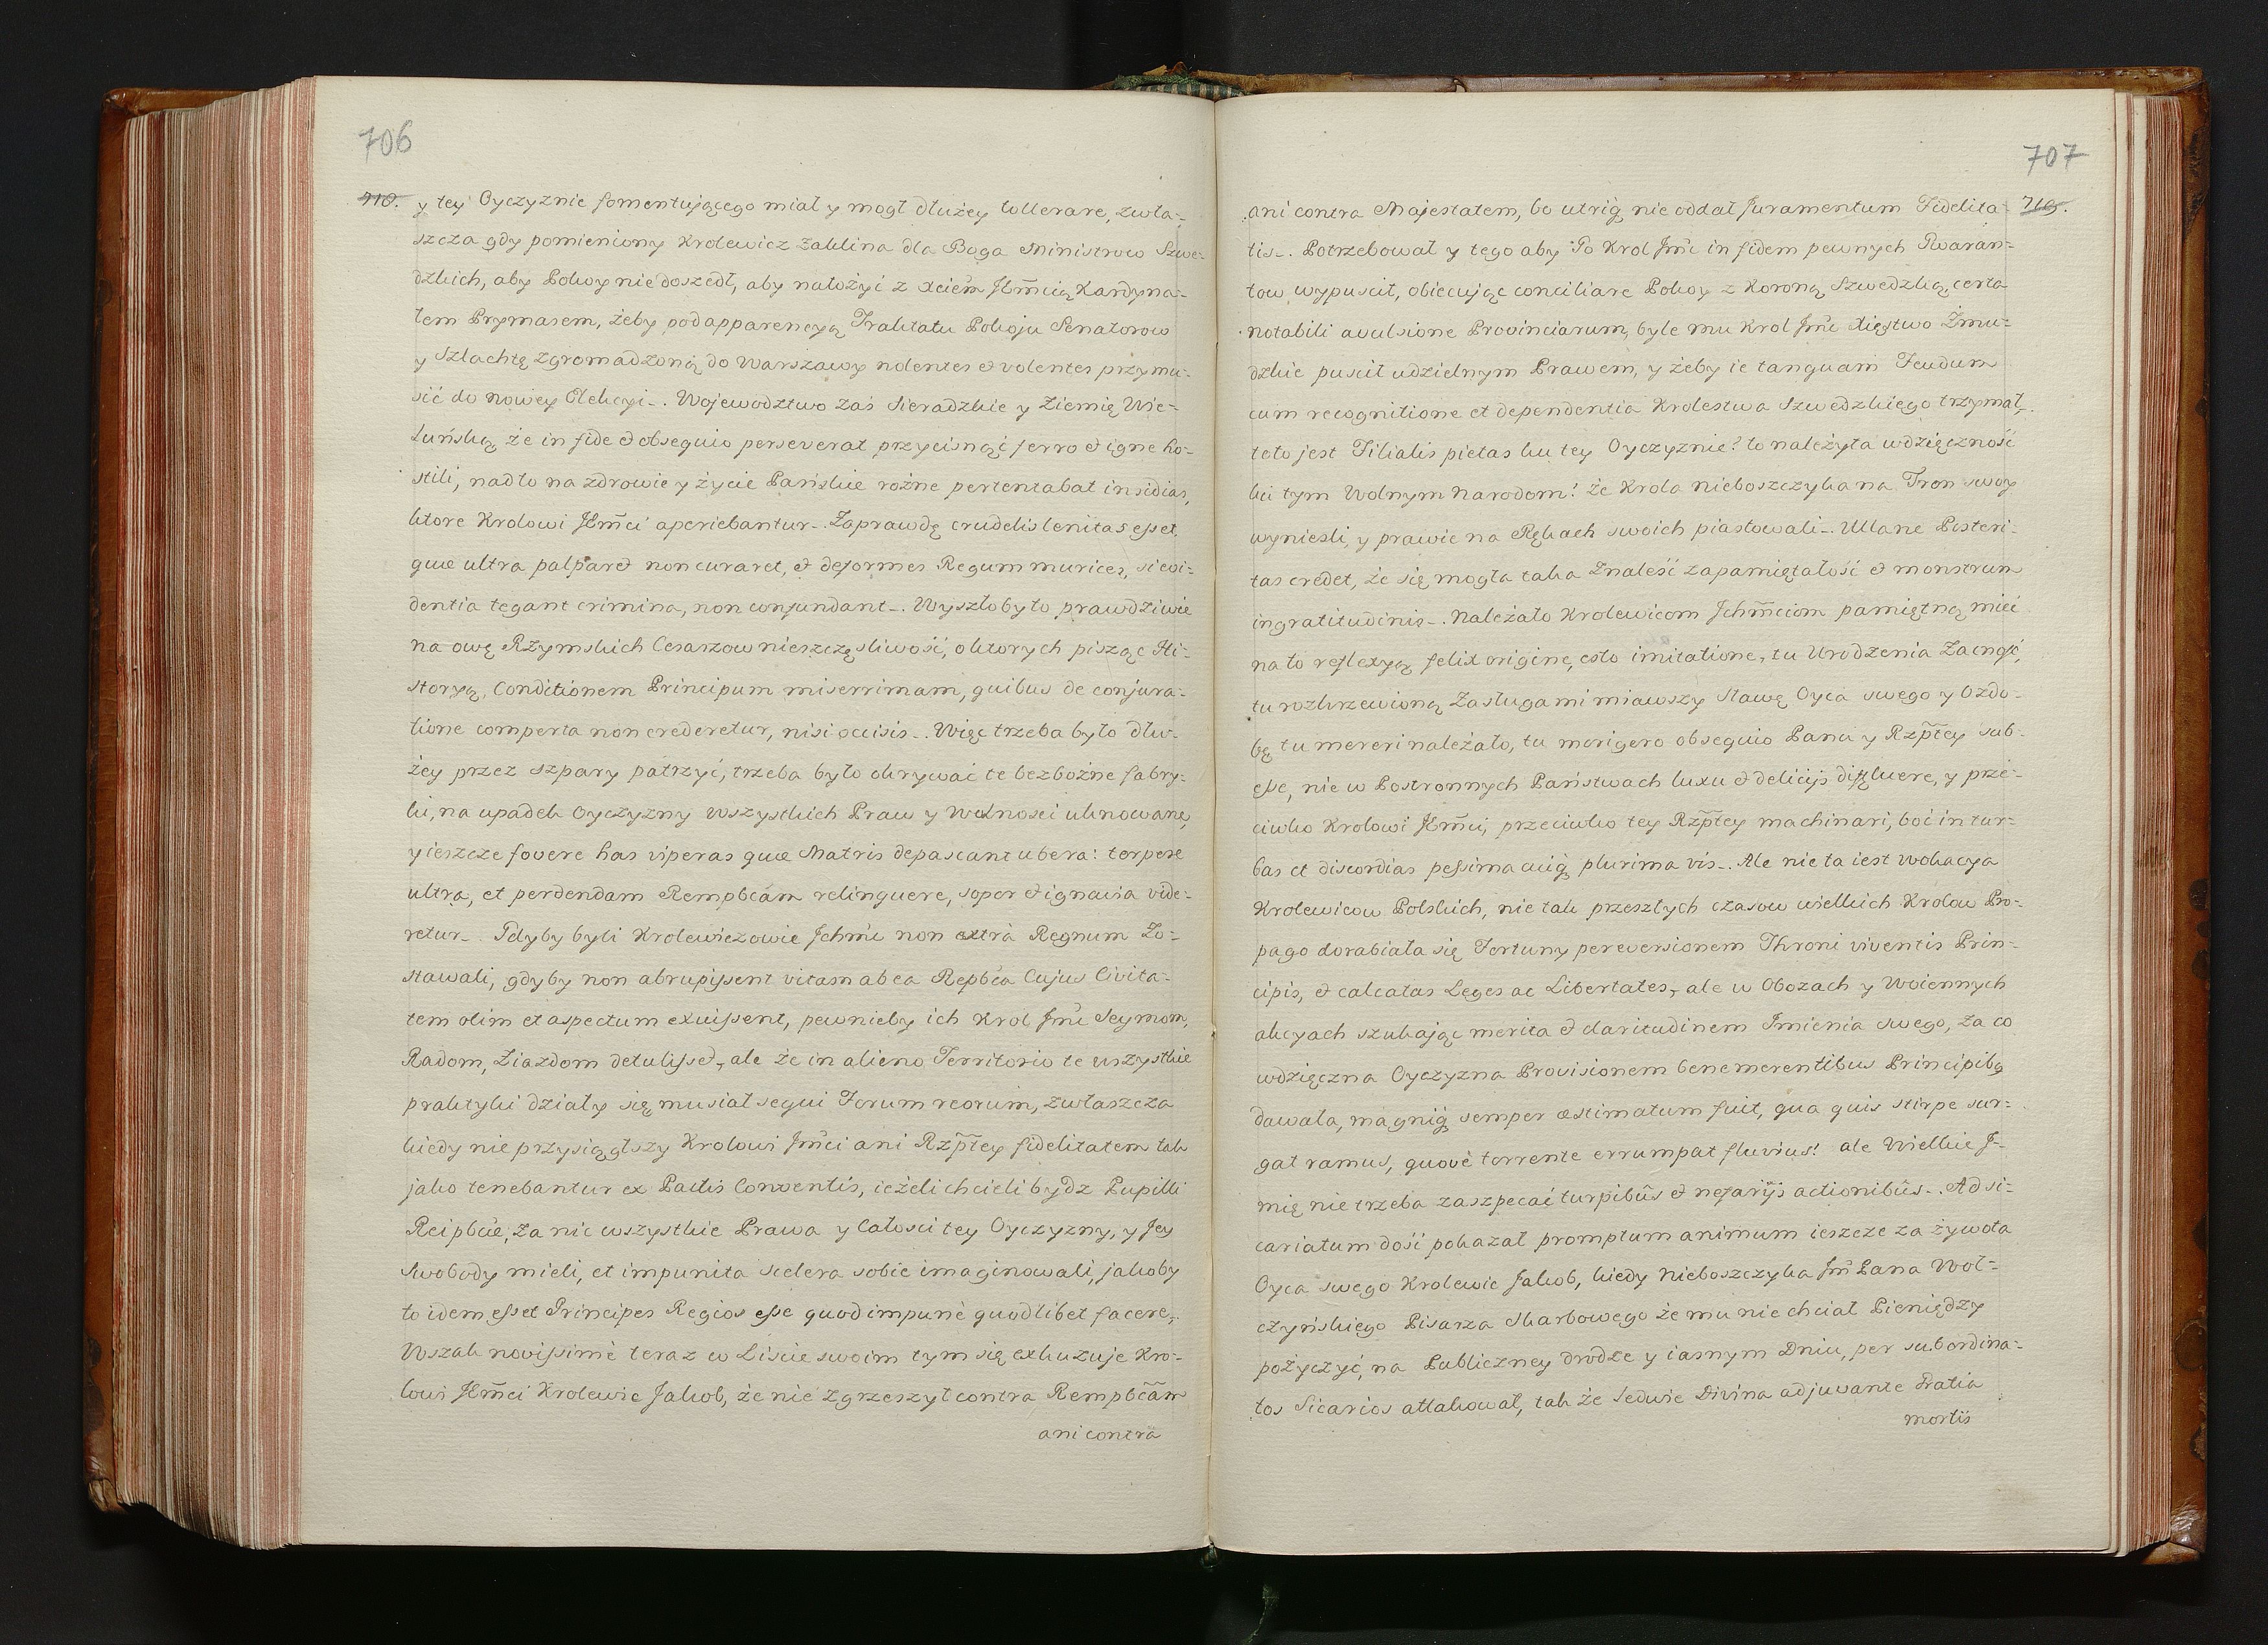 706
718.
y tey Oyczyznie fomentuiącego miał y mogł dłużey tollerare, zwła-
szcza gdy pomieniony Krolewicz zaklina dla Boga Ministrow Szwe-
dzkich, aby Pokoy nie doszedł, aby nałożyć z Xciem Jẽmcią Kardyna-
łem Prymasem, żeby pod apparencyą Traktatu Pokoju Senatorow
y Szlachtę zgromadzoną do Warszawy nolentes et volentes przymu-
sić do nowey Elekcyi. Wojewodztwo zaś Sieradzkie y Ziemię Wie-
luńską że in fide et obsequio perseverat przycisnąć ferro et igne ho-
stili, nadto na zdrowie y życie Pańskie rożne pertentabat insidias,
ktore Krolowi Jẽmci aperiebantur. Zaprawdę crudelis lenitas esset,
quæ ultra palparet non curaret, et deformes Regum murices, si evi-
dentia tegant crimina, non confundant. Wyszłoby to prawdziwie
na owę Rzymskich Cesarzow nieszczęsliwość, o ktorych pisząc Hi-
storyą, Conditionem Principum miserrimam, quibus de conjura-
tione comperta non crederetur, nisi occisis. Więc trzeba było dłu-
żey przez szpary patrzyć, trzeba było okrywać te bezbożne fabry-
ki, na upadek Oyczyzny wszystkich Praw y Wolności uknowane,
y ieszcze fovere has viperas quæ Matris depascant ubera: torpere
ultra, et perdendam Rempbcam relinquere, sopor et ignavia vide-
retur. Gdyby byli Krolewiczowie Jchmc non extrà Regnum zo-
stawali, gdyby non abrupissent vitam ab ea Repbca Cujus Civita-
tem olim et aspectum exuissent, pewnieby ich Krol Jmc Seymom,
Radom, Ziazdom detulisset, ale że in alieno Territorio te wszystkie
praktyki działy się musiał sequi Forum reorum, zwłaszcza
kiedy nie przysiągłszy Krolowi Jmci ani Rzptey fidelitatem tak
jako tenebantur ex Pactis Conventis, ieżeli chcieli bydz Pupilli
Reipbcæ, za nic wszystkie Prawa y Całości tey Oyczyzny, y Jey
Swobody mieli, et impunita scelera sobie imaginowali, jakoby
to idem esset Principes Regios esse quod impunè quodlibet facere,
Wszak novissimè teraz w Liscie swoim tym się exkuzuje Kro-
lowi Jẽmci Krolewic Jakob, że nie zgrzeszył contra Rempbcam
ani contra
707
719.
ani contra Majestatem, bo utriq nie oddał Juramentum Fidelita-
tis. Potrzebował y tego aby Go Krol Jmc in fidem pewnych Gwaran-
tow wypuscił, obiecując conciliare Pokoy z Koroną Szwedzką certa
notabili avulsione Provinciarum, byle mu Krol Jmc Xięstwo Żmu-
dzkie puscił udzielnym Prawem, y żeby ie tanquam Feudum
cum recognitione et dependentia Krolestwa Szwedzkiego trzymał,
teto jest Filialis pietas ku tey Oyczyznie? to należyta wdzięczność
ku tym Wolnym Narodom! że Krola nieboszczyka na Tron swoy
wyniesli, y prawie na Rękach swoich piastowali. Ullane Posteri-
tas credet, że się mogła taka znaleść zapamiętałość et monstrum
ingratitudinis. Należało Krolewicom Jchmciom pamiętną mieć
na to reflexyą felix origine, esto imitatione, tu Urodzenia Zacność,
tu rozkrzewioną Zasługami miawszy Sławę Oyca swego y Ozdo-
bę tu mereri należało, tu morigero obsequio Panu y Rzptey sub-
esse, nie w Postronnych Państwach luxu et delicijs diffluere, y prze-
ciwko Krolowi Jẽmci, przeciwko tey Rzptey machinari, boć in tur-
bas et discordias pessima cuiq plurima vis. Ale nie ta iest wokacya
Krolewicow Polskich, nie tak przeszłych czasow wielkich Krolow Pro-
pago dorabiała się Fortuny per eversionem Throni viventis Prin-
cipis, et calcatas Leges ac Libertates, ale w Obozach y Woiennych
akcyach szukając merita et claritudinem Jmienia swego, za co
wdzięczna Oyczyzna Provisionem bene merentibus Principibq
dawała, magniq semper æstimatum fuit, qua quis stirpe sur-
gat ramus, quovè torrente errumpat fluvius! ale Wielkie J-
mię nie trzeba zaszpecać turpibûs et nefarijs actionibûs. Ad si-
cariatum dość pokazał promptum animum ieszcze za żywota
Oyca swego Krolewic Jakob, kiedy Nieboszczyka Jm Pana Wol-
czyńskiego Pisarza Skarbowego że mu nie chciał Pieniędzy
pożyczyć, na Publiczney drodze y iasnym Dniu, per subordina-
tos Sicarios attakował, tak że ledwie Divina adjuvante Gratia
mortis